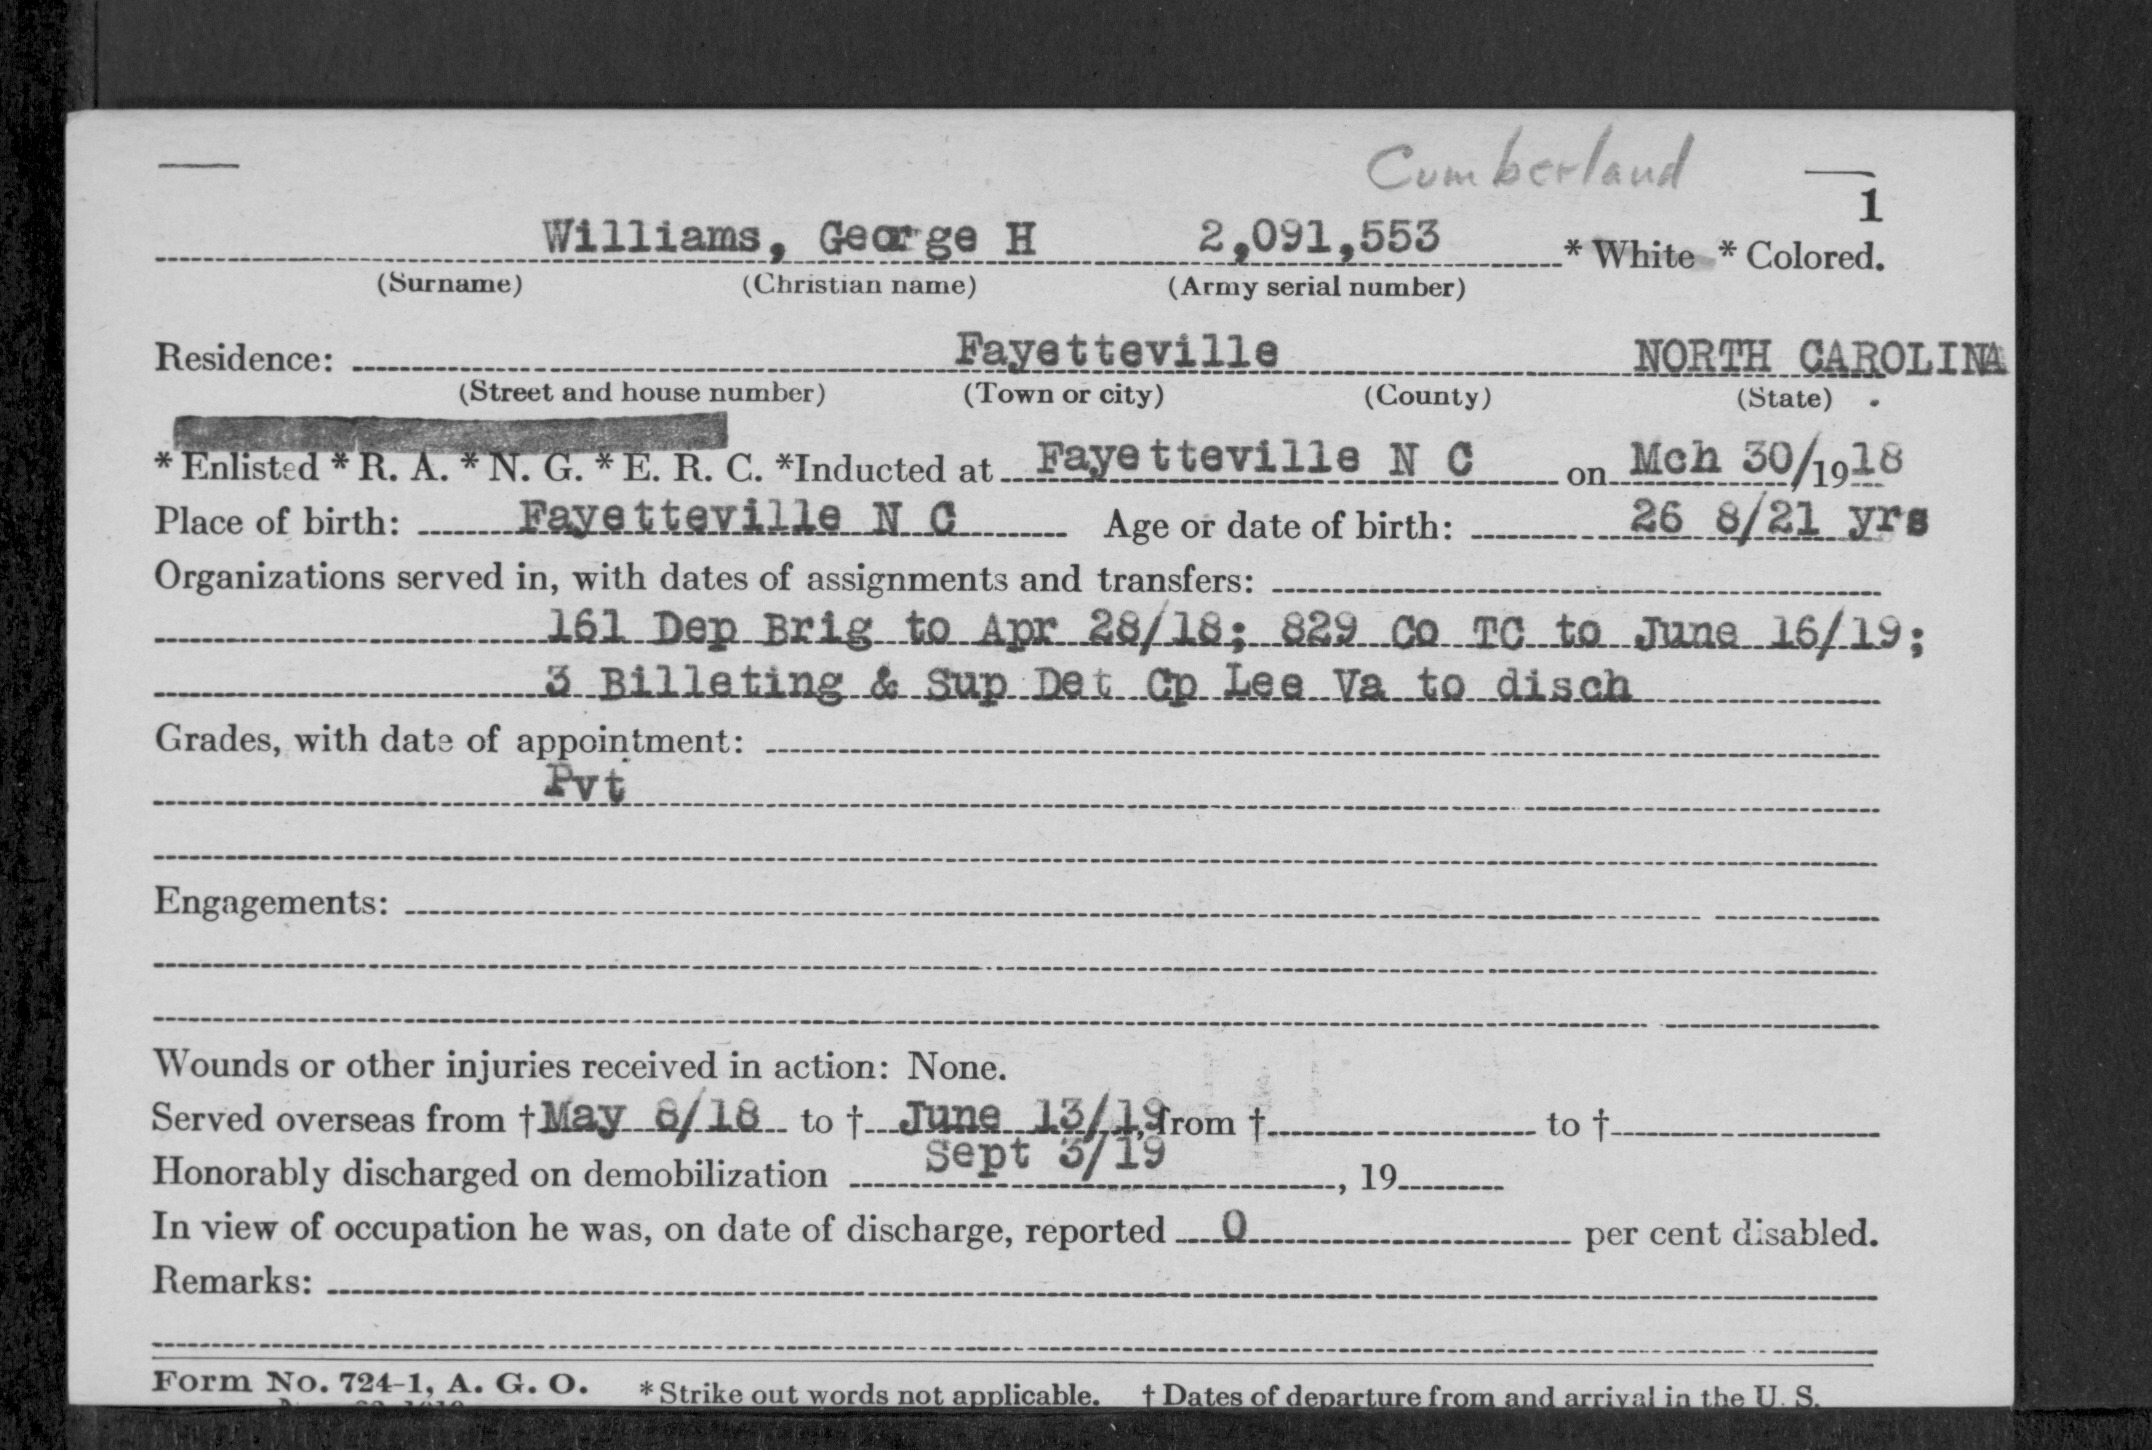 Cumberland
1
Williams, George H 2,091,553 * White * Colored.
(Surname) (Christian name) (Army serial number)
Residence: Fayetteville NORTH CAROLINA
(Street and house number) (Town or city) (County) (State)
* Enlisted * R. A. * N. G. * E. R. C. *Inducted at Fayetteville N C on Mch 30/1918
Place of birth: Fayetteville N C Age or date of birth: 26 8/21 yrs
Organizations served in, with dates of assignments and transfers:
161 Dep Brig to Apr 28/18; 829 Co TC to June 16/19;
3 Billeting & Sup Det Cp Lee Va to disch
Grades, with date of appointment:
Pvt
Engagements:
Wounds or other injuries received in action: None.
Served overseas from † May 8/18 to † June 13/19, from † to †
Honorably discharged on demobilization Sept 3/19, 19
In view of occupation he was, on date of discharge, reported 0 per cent disabled.
Remarks:
Form No. 724-1, A. G. O. * Strike out words not applicable. † Dates of departure from and arrival in the U. S.